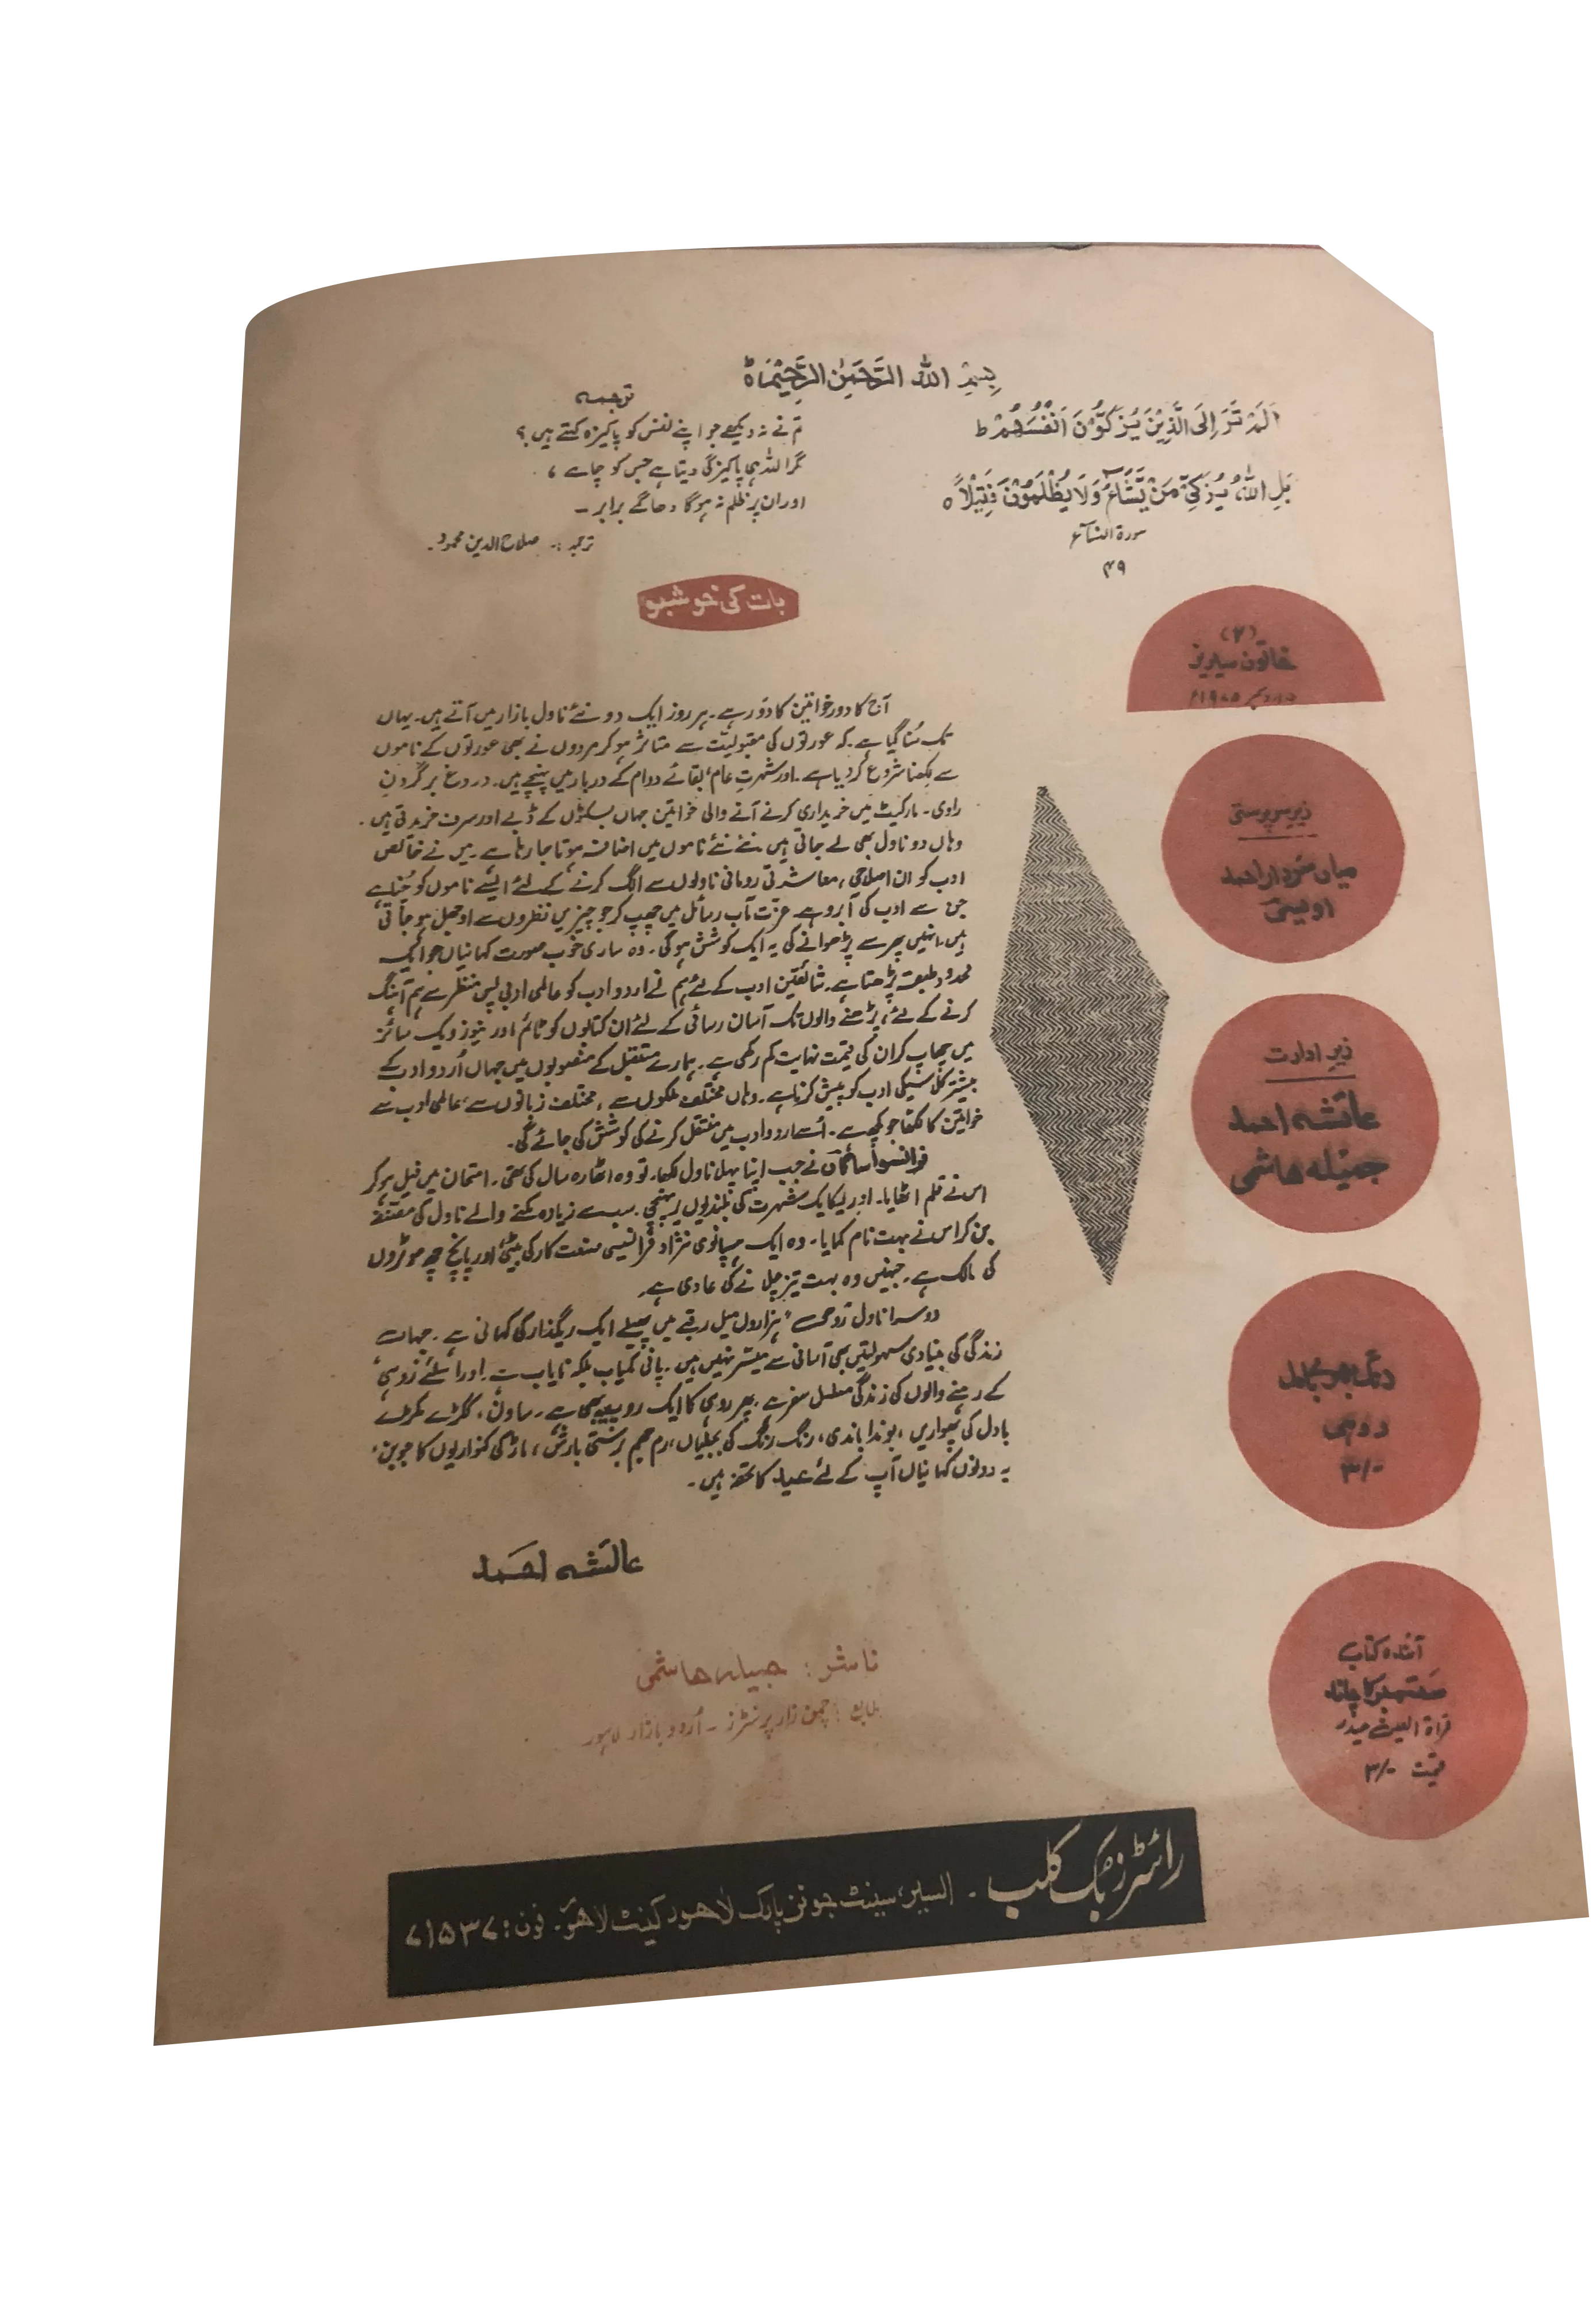 بِسْمِ اللهِ الرَّحْمٰنِ الرَّحِيْمِ ٥
اَلَمْ تَرَ اِلَى الَّذِيْنَ يُزَكُّوْنَ اَنْفُسَهُمْ ط
بَلِ اللهُ يُزَكِّيْ مَنْ يَّشَآءُ وَلَا يُظْلَمُوْنَ فَتِيْلًا ٥
سورة النسآء
۴۹
ترجمہ
تم نے نہ دیکھے جو اپنے نفس کو پاکیزہ کہتے ہیں؟
مگر اللہ ہی پاکیزگی دیتا ہے جس کو چاہے ،
اور ان پر ظلم نہ ہوگا دھاگے برابر ۔
ترجمہ :۔ صلاح الدین محمود۔
بات کی خوشبو
آج کا دور خواتین کا دَور ہے۔ ہر روز ایک دو نئے ناول بازار میں آتے ہیں۔ یہاں
تک سُنا گیا ہے۔ کہ عورتوں کی مقبولیّت سے متاثر ہو کر مردوں نے بھی عورتوں کے ناموں
سے لِکھنا شروع کر دیا ہے۔ اور شہرتِ عام، بقائے دوام کے دربار میں پہنچے ہیں۔ دروغ برگردنِ
راوی۔ مارکیٹ میں خریداری کرنے آنے والی خواتین جہاں بسکٹوں کے ڈبے اور سرف خریدتی ہیں۔
وہاں دو ناول بھی لے جاتی ہیں۔ نئے نئے ناموں میں اضافہ ہوتا جا رہا ہے۔ میں نے خالص
ادب کو ان اصلاحی، معاشرتی رومانی ناولوں سے الگ کرنے کے لئے ایسے ناموں کو چُنا ہے
جن سے ادب کی آبرو ہے۔ عزّت مآب رسائل میں چھپ کر جو چیزیں نظروں سے اوجھل ہو جاتی
ہیں۔ انہیں پھر سے پڑھوانے کی یہ ایک کوشش ہوگی۔ وہ ساری خوب صورت کہانیاں جو ایک
محدود طبقہ پڑھتا ہے۔ شائقین ادب کے لئے ہم نے اردو ادب کو عالمی ادبی پس منظر سے ہم آہنگ
کرنے کے لئے، پڑھنے والوں تک آسان رسائی کے لئے ان کتابوں کو ٹائم اور نیوز ویک سائز
میں چھاپ کر ان کی قیمت نہایت کم رکھی ہے۔ ہمارے مستقبل کے منصوبوں میں جہاں اُردو ادب کے
بیشتر کلاسیکی ادب کو پیش کرنا ہے۔ وہاں مختلف ملکوں سے، مختلف زبانوں سے، عالمی ادب سے
خواتین کا لکھا جو کچھ ہے۔ اُسے اردو ادب میں منتقل کرنے کی کوشش کی جائے گی۔
فرانسوا ساگاں نے جب اپنا پہلا ناول لکھا۔ تو وہ اٹھارہ سال کی تھی۔ امتحان میں فیل ہو کر
اس نے قلم اٹھایا۔ اور یکایک شہرت کی بلندیوں پر پہنچی۔ سب سے زیادہ بکنے والے ناول کی مصنفہ
بن کر اس نے بہت نام کمایا۔ وہ ایک ہسپانوی نژاد فرانسیسی صنعت کار کی بیٹی اور پانچ چھ موٹروں
کی مالک ہے۔ جنہیں وہ بہت تیز چلانے کی عادی ہے۔
دوسرا ناول رَوہی ہزاروں میل رقبے میں پھیلے ایک ریگذار کی کہانی ہے۔ جہاں
زندگی کی بنیادی سہولتیں بھی آسانی سے میسّر نہیں ہیں۔ پانی کمیاب بلکہ نایاب ہے۔ اور اسلئے رَوہی
کے رہنے والوں کی زندگی مسلسل سفر ہے۔ پھر روہی کا ایک روپ یہ بھی ہے۔ ساون، ٹکڑے ٹکڑے
بادل کی پھواریں، بوندا باندی، رنگ رنگ کی بجلیاں، رم جھم برستی بارش، ماڑ کی کنواریوں کا جوبن۔
یہ دونوں کہانیاں آپ کے لئے عید کا تحفہ ہیں۔
عائشہ احمد
ناشر: جمیلہ ہاشمی
طابع: چمن زار پرنٹرز ۔ اُردو بازار لاہور
(۲)
خاتون سیریز
دسمبر ۱۹۷۵ء
زیر سرپرستی
میاں سردار احمد
اویسی
زیر ادارت
عائشہ احمد
جمیلہ ہاشمی
روہی
۳/-
آئندہ کتاب
ستمبر کا چاند
قراۃ العین حیدر
قیمت ۳/-
رائٹرز بُک کلب ۔ السیر، سینٹ جونز پارک لاہور کینٹ لاہور۔ فون: ۷۱۵۳۷